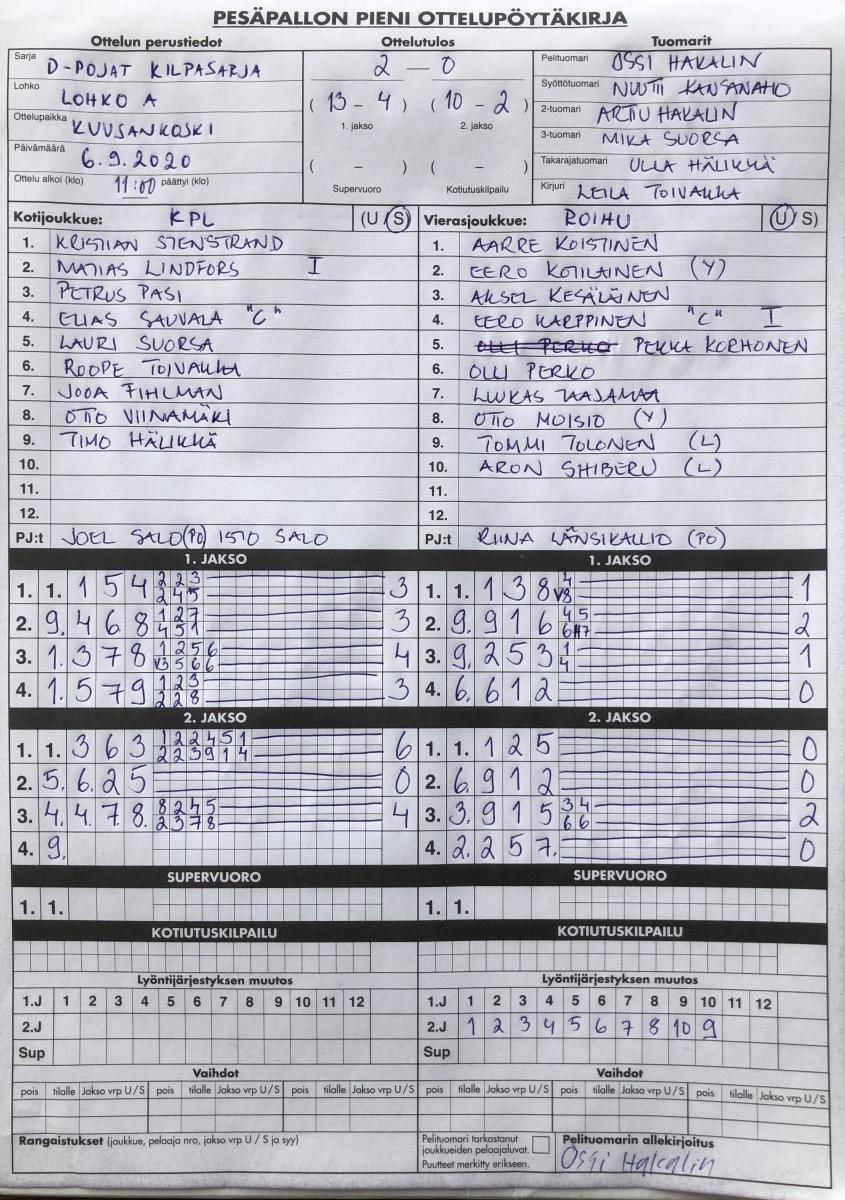 PESÄPALLON PIENI OTTELUPÖYTÄKIRJA
Ottelun perustiedot Ottelutulos Tuomarit
Sarja D-POJAT KILPASARJA
Lohko LOHKO A
Ottelupaikka KUUSANKOSKI
Päivämäärä 6.9.2020
Ottelu alkoi (klo) 11:00 päättyi (klo)
2 — 0
( 13 - 4 ) ( 10 - 2 )
1. jakso 2. jakso
( – ) ( – )
Supervuoro Kotiutuskilpailu
Pelituomari OSSI HAKALIN
Syöttötuomari NUUTTI KANSANAHO
2-tuomari ARTTU HAKALIN
3-tuomari MIKA SUORSA
Takarajatuomari ULLA HÄLIKKÄ
Kirjuri LEILA TOIVAKKA
Kotijoukkue: KPL (U / S)
1. KRISTIAN STENSTRAND
2. MATIAS LINDFORS I
3. PETRUS PASI
4. ELIAS SAUVALA "C"
5. LAURI SUORSA
6. ROOPE TOIVAKKA
7. JOOA FIHLMAN
8. OTTO VIINAMÄKI
9. TIMO HÄLIKKÄ
10.
11.
12.
PJ:t JOEL SALO (PO) SALO
Vierasjoukkue: ROIHU (U / S)
1. AARRE KOISTINEN
2. EERO KOTILAINEN (Y)
3. AKSEL KESÄLÄINEN
4. EERO KARPPINEN "C" I
5. OLLI PERKO PEKKA KORHONEN
6. OLLI PERKO
7. LUUKAS TAAJAMAA
8. OTTO MOISIO (Y)
9. TOMMI TOLONEN (L)
10. ARON SHIBERU (L)
11.
12.
PJ:t RIINA LÄNSIKALLIO (PO)
1. JAKSO
1. 1. 1 5 4 2 2 3 3
2 4 5
2. 9. 4 6 8 1 2 7 3
4 5 1
3. 1. 3 7 8 1 2 5 6 4
V3 5 6 6
4. 1. 5 7 9 1 2 3 3
2 2 8
1. JAKSO
1. 1. 1 3 8 4 1
V8
2. 9. 9 1 6 4 5 2
6 H7
3. 9. 2 5 3 1 1
4
4. 6. 6 1 2 0
2. JAKSO
1. 1. 3 6 3 1 2 2 4 5 1 6
2 2 3 9 1 4
2. 5. 6. 2 5 0
3. 4. 4 7 8. 8 2 4 5 4
2 3 7 8
4. 9.
2. JAKSO
1. 1. 1 2 5 0
2. 6. 9 1 2 0
3. 3. 9 1 5 3 4 2
6 6
4. 2. 2 5 7. 0
SUPERVUORO
1. 1.
SUPERVUORO
1. 1.
KOTIUTUSKILPAILU
KOTIUTUSKILPAILU
Lyöntijärjestyksen muutos
1.J 1 2 3 4 5 6 7 8 9 10 11 12
2.J
Sup
Lyöntijärjestyksen muutos
1.J 1 2 3 4 5 6 7 8 9 10 11 12
2.J 1 2 3 4 5 6 7 8 10 9
Sup
Vaihdot
pois tilalle Jakso vrp U / S pois tilalle Jakso vrp U / S pois tilalle Jakso vrp U / S
Vaihdot
pois tilalle Jakso vrp U / S pois tilalle Jakso vrp U / S pois tilalle Jakso vrp U / S
Rangaistukset (joukkue, pelaaja nro, jakso vrp U / S ja syy)
Pelituomari tarkastanut
joukkueiden pelaajaluvat.
Puutteet merkitty erikseen.
Pelituomarin allekirjoitus
Ossi Hakalin